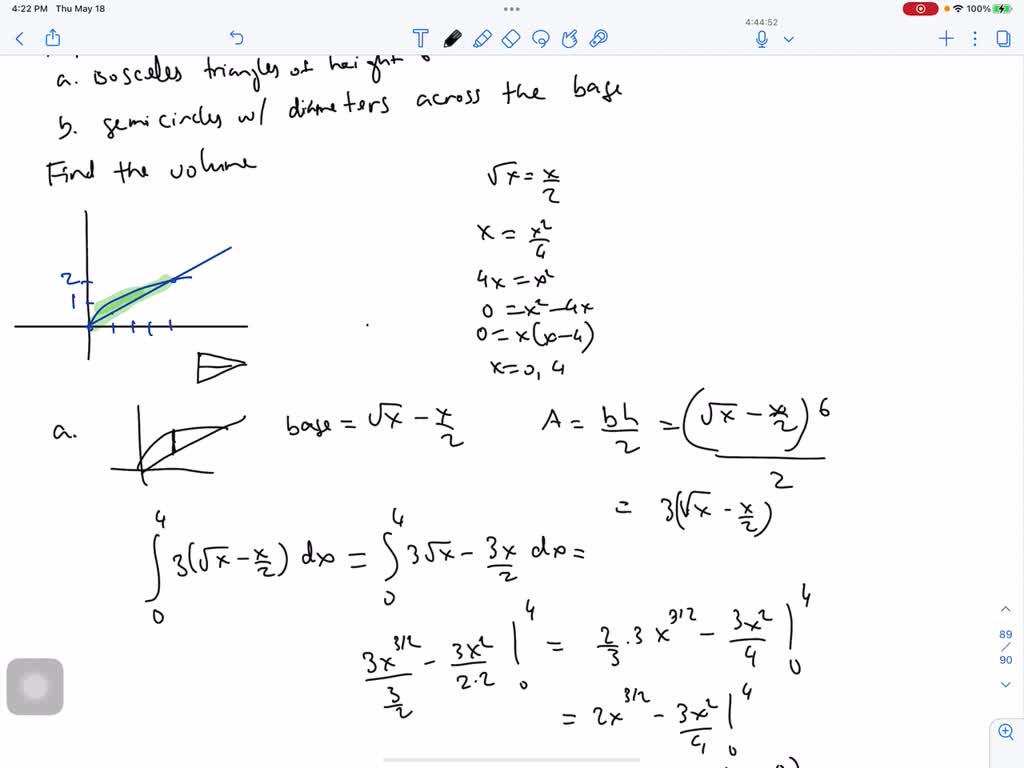 4:22 PM Thu May 18
100%
4:44:52
a. isosceles triangles of height 6
b. semicircles w/ diameters across the base
Find the volume
√x = x/2
x = x²/4
4x = x²
0 = x² - 4x
0 = x(x-4)
x = 0, 4
2
1
a.
base = √x - x/2
A = bh/2 = (√x - x/2)6/2
= 3(√x - x/2)
∫₀⁴ 3(√x - x/2) dx = ∫₀⁴ 3√x - 3x/2 dx =
3x^(3/2)/(3/2) - 3x²/2·2 |₀⁴ = 2/3 · 3x^(3/2) - 3x²/4 |₀⁴
= 2x^(3/2) - 3x²/4 |₀⁴
89
/
90